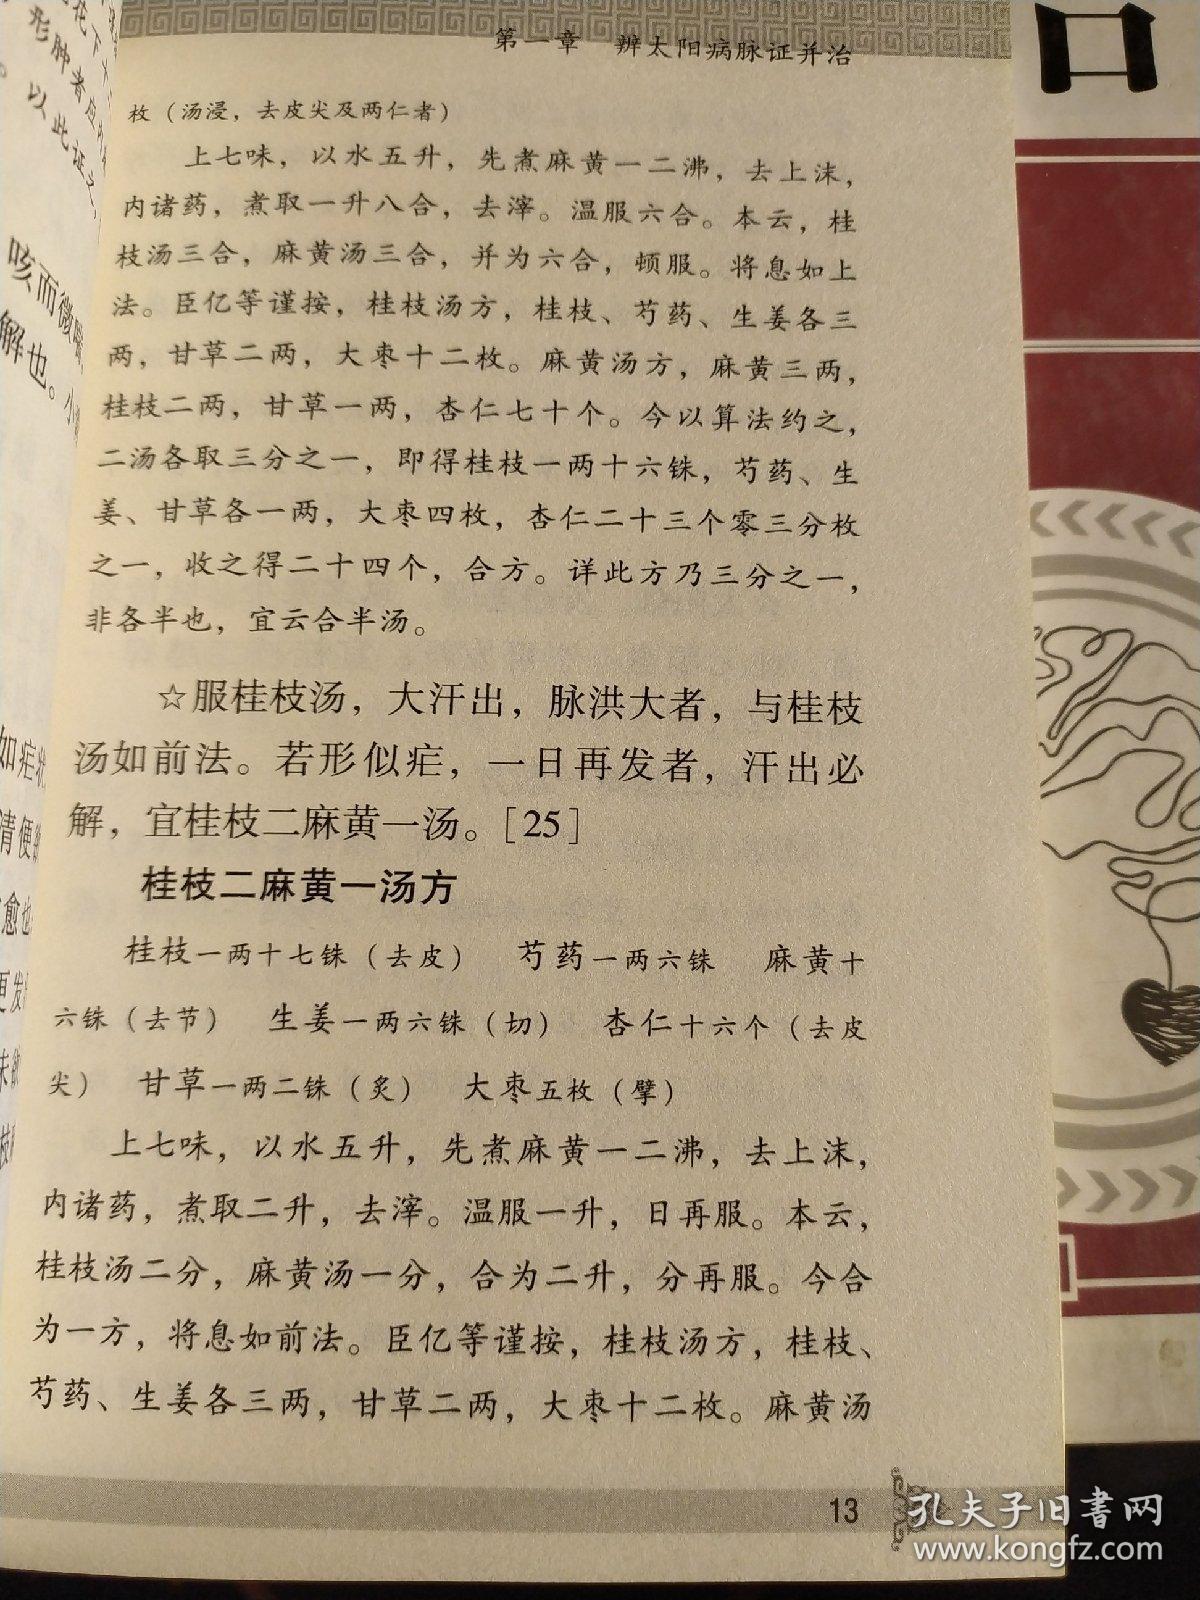 第一章 辨太阳病脉证并治
枚（汤浸，去皮尖及两仁者）
上七味，以水五升，先煮麻黄一二沸，去上沫，
内诸药，煮取一升八合，去滓。温服六合。本云，桂
枝汤三合，麻黄汤三合，并为六合，顿服。将息如上
法。臣亿等谨按，桂枝汤方，桂枝、芍药、生姜各三
两，甘草二两，大枣十二枚。麻黄汤方，麻黄三两，
桂枝二两，甘草一两，杏仁七十个。今以算法约之，
二汤各取三分之一，即得桂枝一两十六铢，芍药、生
姜、甘草各一两，大枣四枚，杏仁二十三个零三分枚
之一，收之得二十四个，合方。详此方乃三分之一，
非各半也，宜云合半汤。
☆服桂枝汤，大汗出，脉洪大者，与桂枝
汤如前法。若形似疟，一日再发者，汗出必
解，宜桂枝二麻黄一汤。［25］
桂枝二麻黄一汤方
桂枝一两十七铢（去皮） 芍药一两六铢 麻黄十
六铢（去节） 生姜一两六铢（切） 杏仁十六个（去皮
尖） 甘草一两二铢（炙） 大枣五枚（擘）
上七味，以水五升，先煮麻黄一二沸，去上沫，
内诸药，煮取二升，去滓。温服一升，日再服。本云，
桂枝汤二分，麻黄汤一分，合为二升，分再服。今合
为一方，将息如前法。臣亿等谨按，桂枝汤方，桂枝、
芍药、生姜各三两，甘草二两，大枣十二枚。麻黄汤
13
肿者应
以此证之
咳而微喘
解也。小
如疟状
清便
愈也
更发
孔夫子旧书网
www.kongfz.com